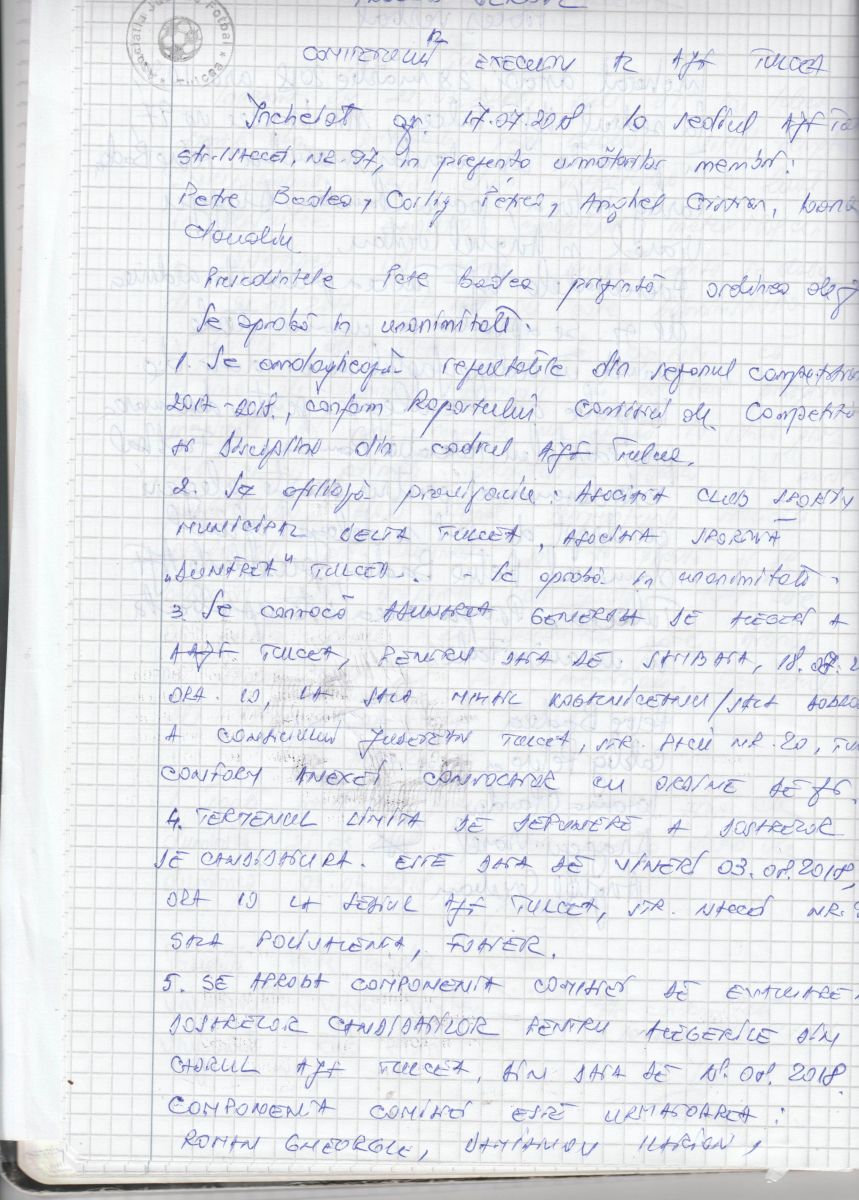 Asociatia Jud Fotbal * Tulcea *
PROCES VERBAL
AL
COMITETULUI EXECUTIV AL AJF TULCEA
Încheiat azi 17.07.2018 la sediul AJF Tu
str. Isaccei, nr. 97, în prezența următorilor membri:
Petre Badea, Petrea, Anghel Cristian,
Claudiu
Președintele Petre Badea prezintă ordinea de zi
Se aprobă în unanimitate.
1. Se omologhează rezultatele din sezonul competițio
2017-2018, conform Raportului Comisiei de Competiți
și Disciplină din cadrul AJF Tulcea.
2. Se afiliază provizoriu: ASOCIATIA CLUB SPORTIV
MUNICIPAL DELTA TULCEA, ASOCIATIA SPORTIVĂ
„DUNAREA" TULCEA. - Se aprobă în unanimitate.
3. Se convocă ADUNAREA GENERALA DE ALEGERI A
AJF TULCEA, PENTRU DATA DE SAMBATA, 18.08.2
ORA 10, LA SALA MIHAIL KOGALNICEANU/SALA DOBRO
A CONSILIULUI JUDETEAN TULCEA, STR. PACII NR. 20, TUL
CONFORM ANEXEI CONVOCATOR CU ORDINE DE ZI.
4. TERMENUL LIMITA DE DEPUNERE A DOSARELOR
DE CANDIDATURA. ESTE DATA DE VINERI 03.08.2018,
ORA 10 LA SEDIUL AJF TULCEA, STR. ISACCEI NR. 9
SALA POLIVALENTA, FOAIER.
5. SE APROBA COMPONENTA COMISIEI DE EVALUARE A
DOSARELOR CANDIDATILOR PENTRU ALEGERILE DIN
CADRUL AJF TULCEA, DIN DATA DE 18.08.2018.
COMPONENTA COMISIEI ESTE URMATOAREA:
ROMAN GHEORGHE, DAMIANOV ILARION,